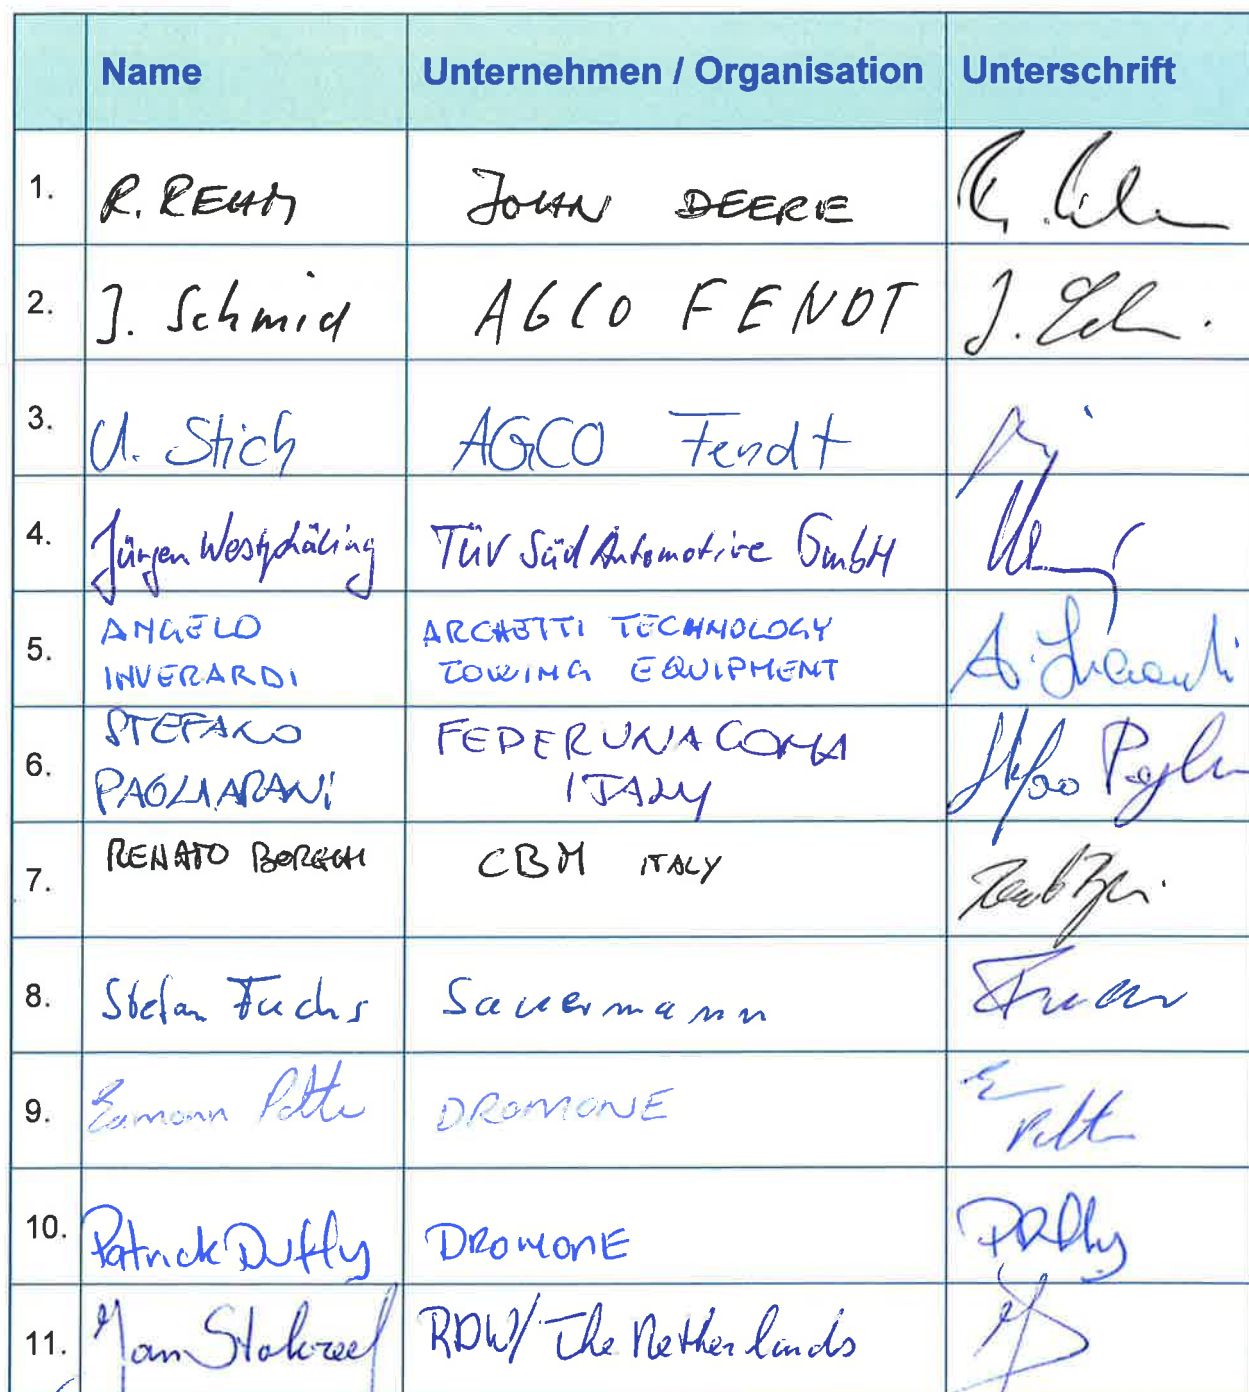 Name Unternehmen / Organisation Unterschrift
1. R. REHM JOHN DEERE
2. J. Schmid AGCO FENDT J.
3. U. Stich AGCO Fendt
4. Jürgen Westphäling TÜV Süd Automotive GmbH
5. ANGELO ARCHETTI TECHNOLOGY
INVERARDI TOWING EQUIPMENT A. Inverardi
6. STEFANO FEDERUNACOMA
PAGLIARANI ITALY
7. RENATO BORGHI CBM ITALY
8. Stefan Fuchs Sauermann
9. Eamonn DROMONE
10. Patrick Duffy DROMONE PDuffy
11. Jan RDW/ The Netherlands